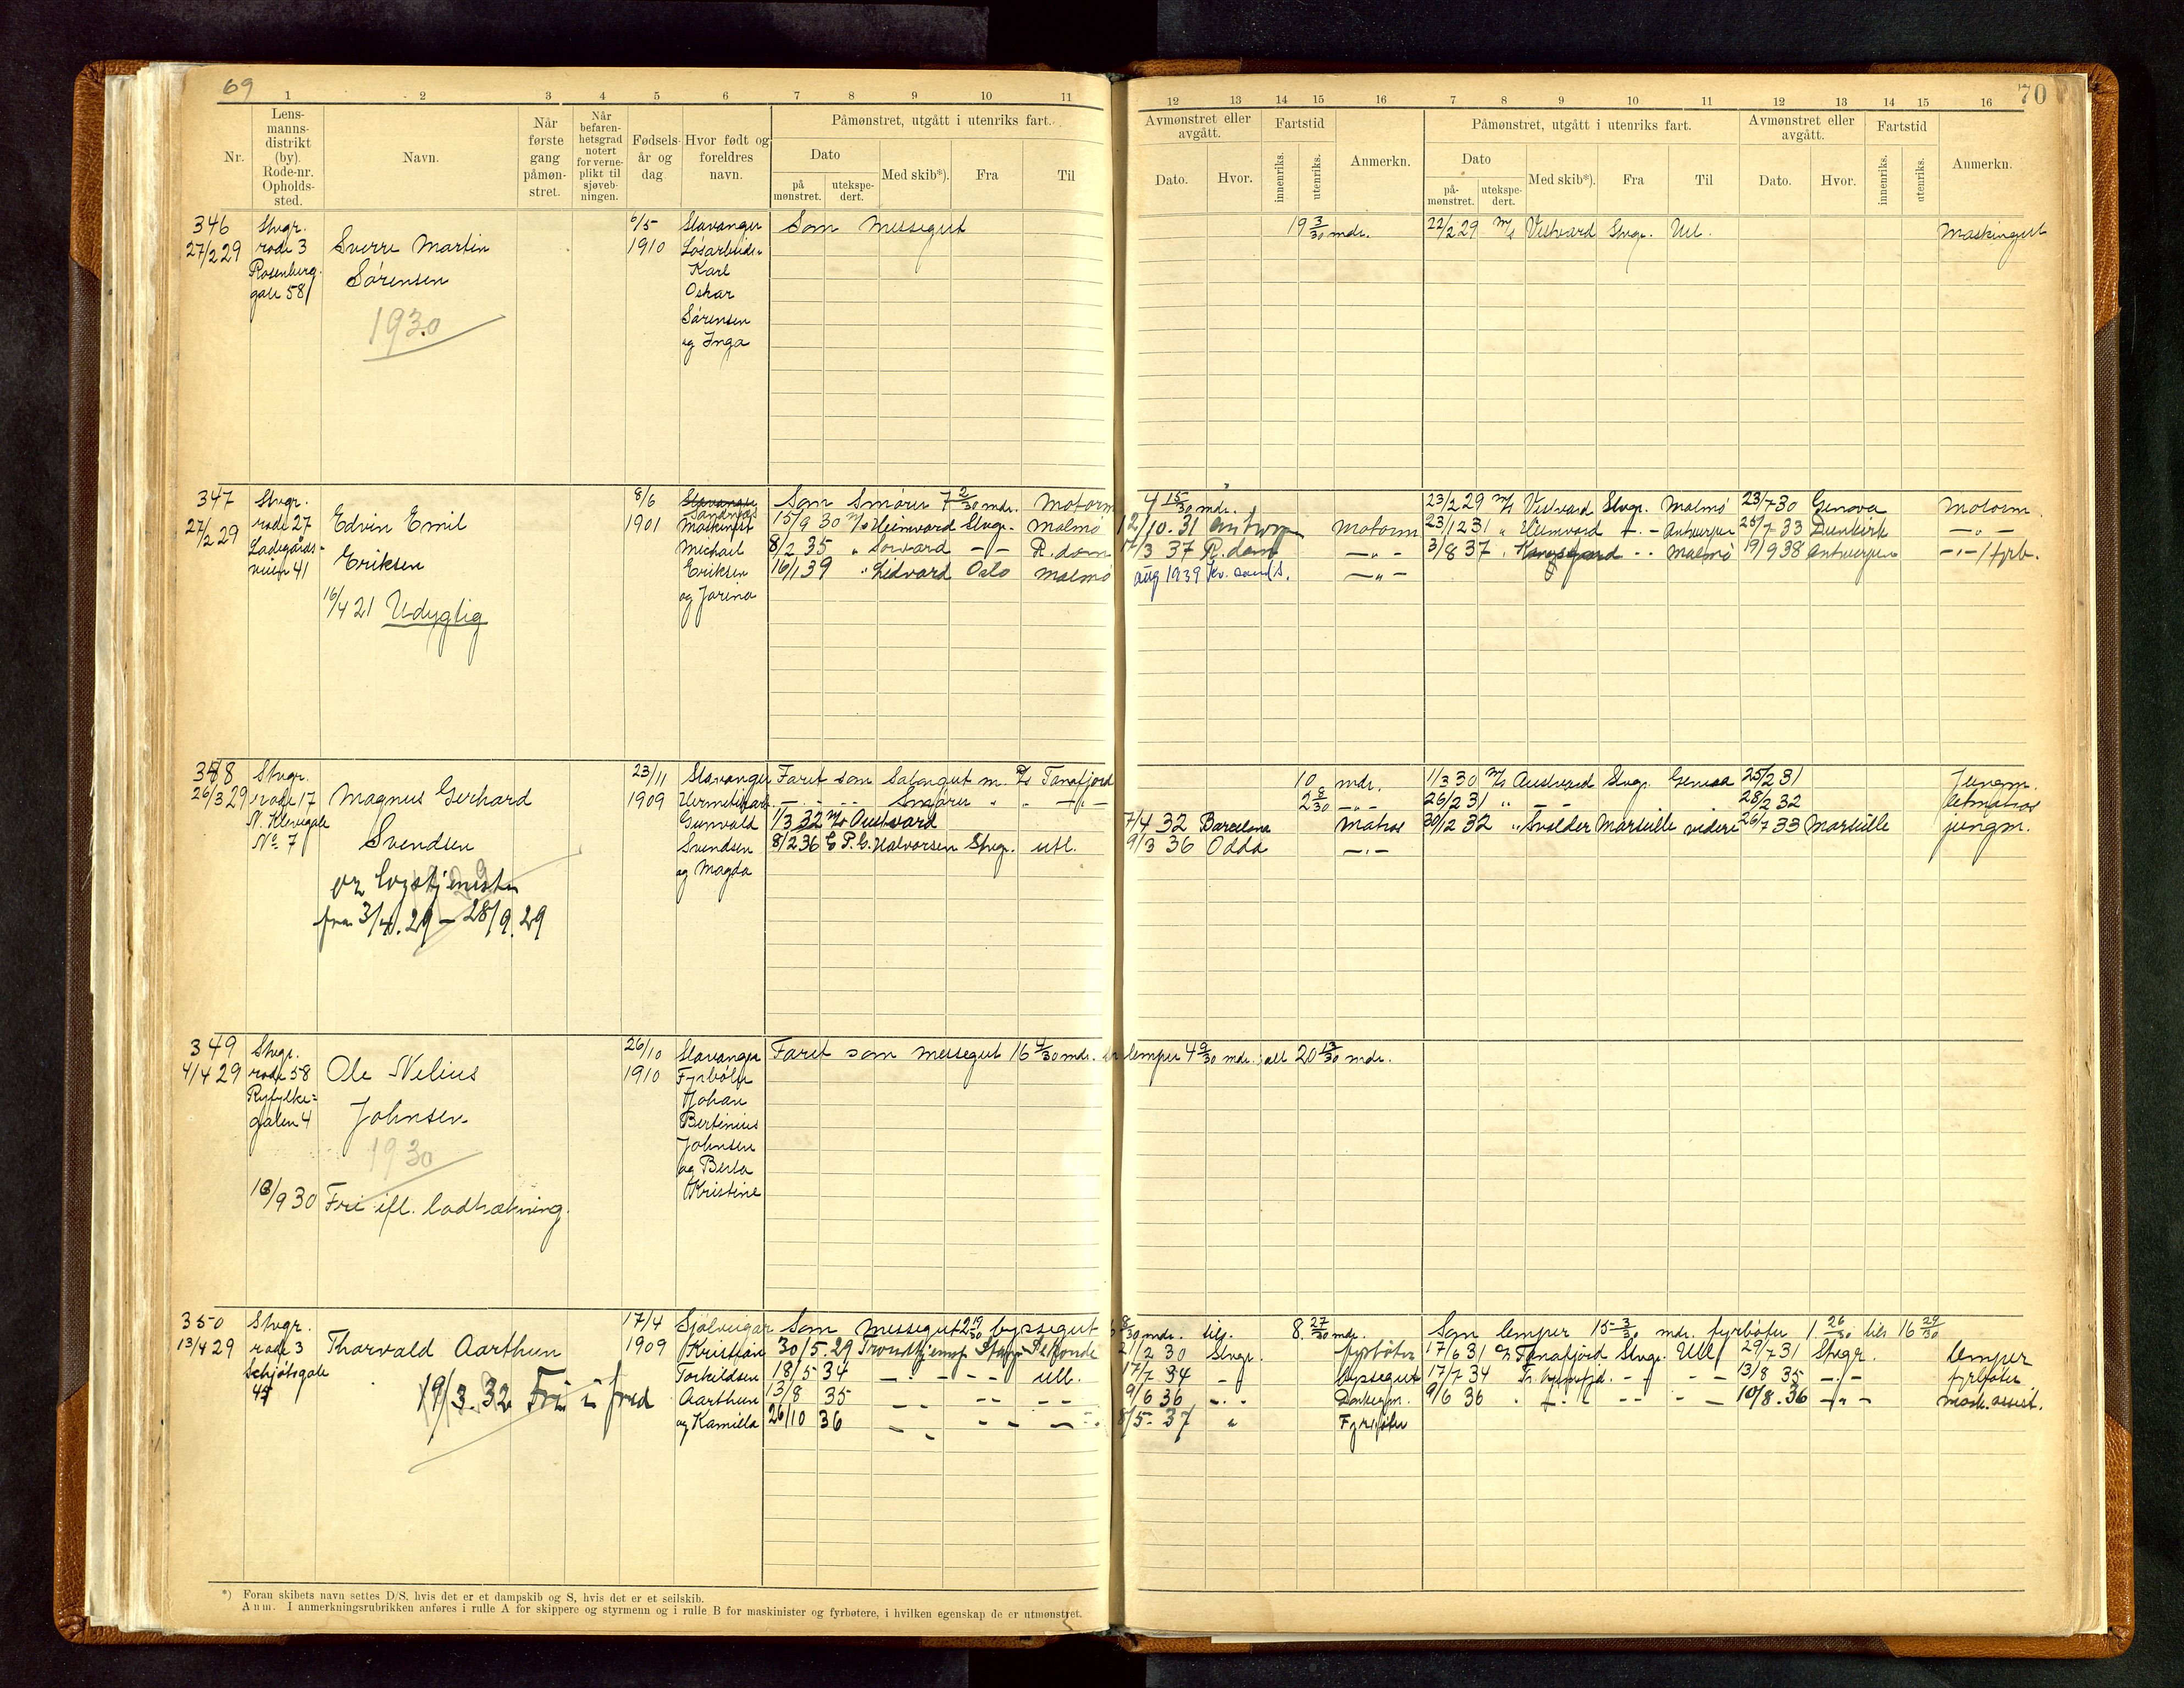 69
70
1 2 3 4 5 6 7 8 9 10 11
12 13 14 15 16 7 8 9 10 11 12 13 14 15 16
Nr.
Lens-
manns-
distrikt
(by).
Rode-nr.
Opholds-
sted.
Navn.
Når
første
gang
påmøn-
stret.
Når
befaren-
hetsgrad
notert
for verne-
plikt til
sjøveb-
ningen.
Fødsels-
år og
dag
Hvor født og
foreldres
navn.
Påmønstret, utgått i utenriks fart.
Dato
på
mønstret.
utekspe-
dert.
Med skib*).
Fra
Til
Avmønstret eller
avgått.
Dato.
Hvor.
Fartstid
innenriks.
utenriks.
Anmerkn.
Påmønstret, utgått i utenriks fart.
Dato
på-
mønstret.
utekspe-
dert.
Med skib*).
Fra
Til
Avmønstret eller
avgått.
Dato.
Hvor.
Fartstid
innenriks.
utenriks.
Anmerkn.
346
27/2 29
Stvgr.
rode 3
Rosenberg
gate 58
Sverre Martin
Sørensen
1930
6/5
1910
Stavanger
Løsarbeider
Karl
Oskar
Sørensen
og Inga
Som messegut
19 3/30 mdr.
22/2 29 M/S Vestvard Stvgr. Utl. Maskingut
347
27/2 29
Stvgr.
rode 27
Ladegårds-
veien 41
Edvin Emil
Eriksen
16/4 21 Udygtig
8/6
1901
Stavanger
Sandnes
Maskinist
Michael
Eriksen
og Jorina
Som Smører 7 2/30 mdr. Motorm 4 15/30 mdr.
15/9 30 M/S Heimvard Stvgr. Malmö 12/10.31 Antwerp Motorm
8/2 35 " Sorvard - - R.dam 17/3 37 R.dam - " -
16/1 39 " Lidvard Oslo Malmö aug 1939 Kr. sand S. - " -
23/2 29 M/S Vestvard Stvgr. Malmö 23/7 30 Genova Motorm.
23/12 31 " Heimvard - - Antwerpen 25/7 33 Dunkirk - " -
3/8 37 " - - Malmö 19/9 38 Antwerpen - " - / fyrb.
348
26/3 29
Stvgr.
rode 17
N. Klevegate
No 7
Magnus Gerhard
Svendsen
pr losstjenesten
fra 3/4.29 - 28/9.29
23/11
1909
Stavanger
Hermetikarb.
Gunvald
Svendsen
og Magda
Faret som Salongut m. D/S Tanafjord 10 mdr.
- " - Smører " " - " - 2 8/30 - " -
1/3 32 M/S Austvard 7/4 32 Barcelona Matros
8/2 36 E P.C. Halvorsen Stvgr. utl. 9/3 36 Odda - " -
1/3 30 M/S Austvard Stvgr. Genoa 25/2 31 Jungm.
26/2 31 " - - 28/2 32 letmatros
30/12 32 " Svolder Marseille videre 26/7 33 Marseille jungm.
349
4/4 29
Stvgr.
rode 58
Ryfylke=
gaten 4
Ole Nelius
Johnsen
1930
18/9 30 Fri ifl. lodtrækning.
26/10
1910
Stavanger
Fyrbøter
Johan
Bertinius
Johnsen
og Berta
Kristine
Faret som messegut 16 4/30 mdr. lemper 4 9/30 mdr. alt 20 13/30 mdr.
350
13/4 29
Stvgr.
rode 3
Schjøtsgate
45
Thorvald Aarthun
19/3. 32 Fri i fred
17/4
1909
Sjølvigar
Kristian
Torkildsen
Aarthun
og Kamilla
Som messegut 2 19/30 byssegut 6 8/30 mdr. tils. 8 27/30 mdr.
30/5 29 Trondhjemsf Stvgr 21/2 30 Stvgr. fyrbøter
18/5 34 - " - - - utl. 17/7 34 - " byssegut
13/8 35 - - - - - - 9/6 36 - " - Donkeym.
26/10 36 - - - - - - 8/5 37 " Fyrbøter
Som lemper 15 3/30 mdr. fyrbøter 1 26/30 tils 16 29/30
17/6 31 D/S Tanafjord Stvgr. Utl 29/7 31 Stvgr. lemper
17/7 34 - - - - 13/8 35 - " - fyrbøter
9/6 36 " - " - - - - - 10/8.36 - " - mask. assist.
*) Foran skibets navn settes D/S, hvis det er et dampskib og S, hvis det er et seilskib.
Anm. I anmerkningsrubrikken anføres i rulle A for skippere og styrmenn og i rulle B for maskinister og fyrbøtere, i hvilken egenskap de er utmønstret.